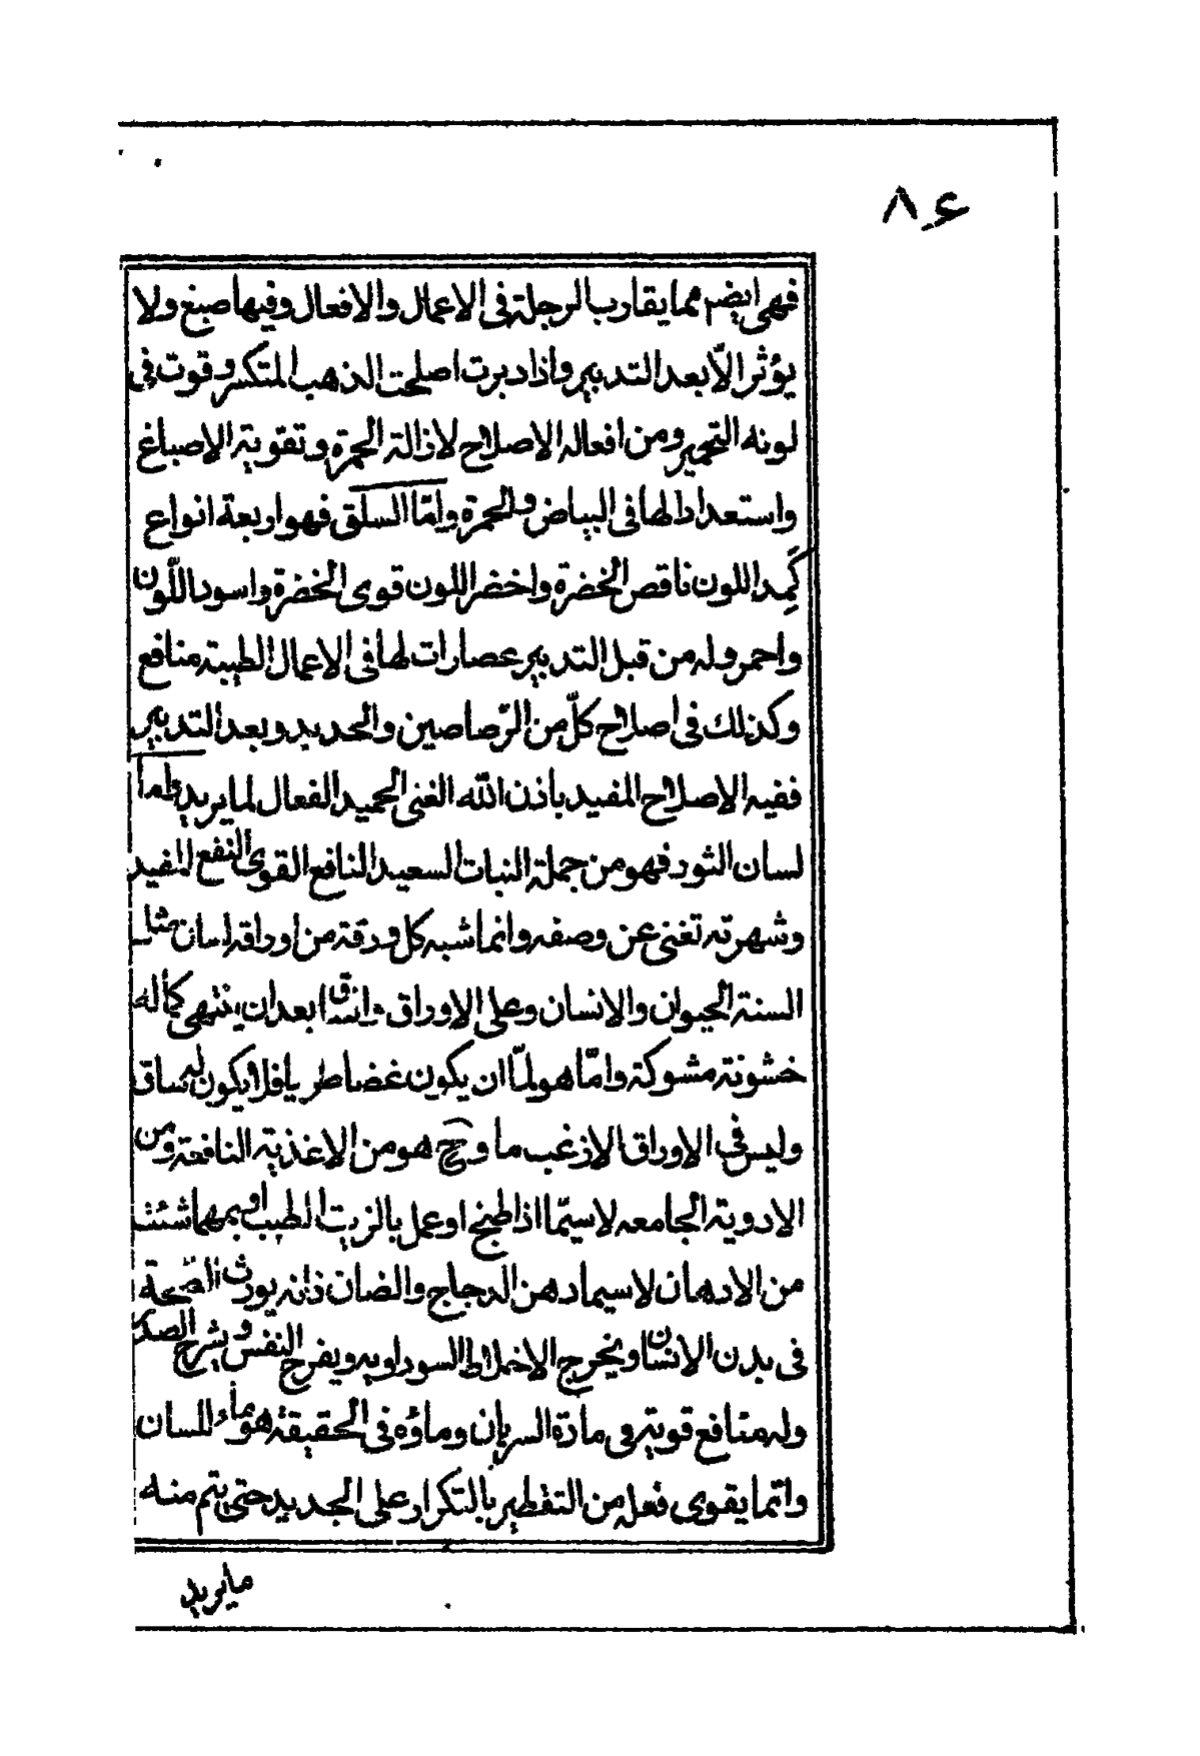 ۸۶
فهى ايضم مما يقارب الرجلة فى الاعمال والافعال وفيها صبغ ولا
يؤثر الّا بعد التدبير واذا دبرت اصلحت الذهب المتكسر وقوت فى
لونه التحمير ومن افعاله الاصلاح لازالة الحمرة وتقوية الاصباغ
واستعدادا لها فى البياض والحمرة وامّا السلق فهو اربعة انواع
كَمِد اللون ناقص الخضرة واخضر اللون قوى الخضرة واسود اللّون
واحمر وله من قبل التدبير عصارات لها فى الاعمال الطبية منافع
وكذلك فى اصلاح كلّ من الرّصاصين والحديد وبعد التدبير
ففيه الاصلاح المفيد باذن الله الغنى الحميد الفعال لما يريد واما
لسان الثور فهو من جملة النبات السعيد النافع القوى النفع المفيد
وشهرته تغنى عن وصفه وانما شبه كل ورقة من اوراقه لسان مثل
السنة الحيوان والانسان وعلى الاوراق وانساق بعد ان ينتهى كماله
خشونة مشوكة وامّا هو لمّا ان يكون غضا طريا فلا يكون له ساق
وليس فى الاوراق الازغب ما وح هو من الاغذية النافعة ومن
الادوية الجامعه لاسيّما اذا طبخ او عمل بالزيت الطيب او بمهما شئت
من الادهان لاسيما دهن الدجاج والضان فانه يورث الصّحة
فى بدن الانسان ويخرج الاخلاط السوداويه ويفرح النفس ويشرح الصدر
وله منافع قوية فى مادة السريان وماؤه فى الحقيقة هو ماء للسان
وانما يقوى فعله من التقطير بالتكرار على الجديد حتى يتم منه
مايريد